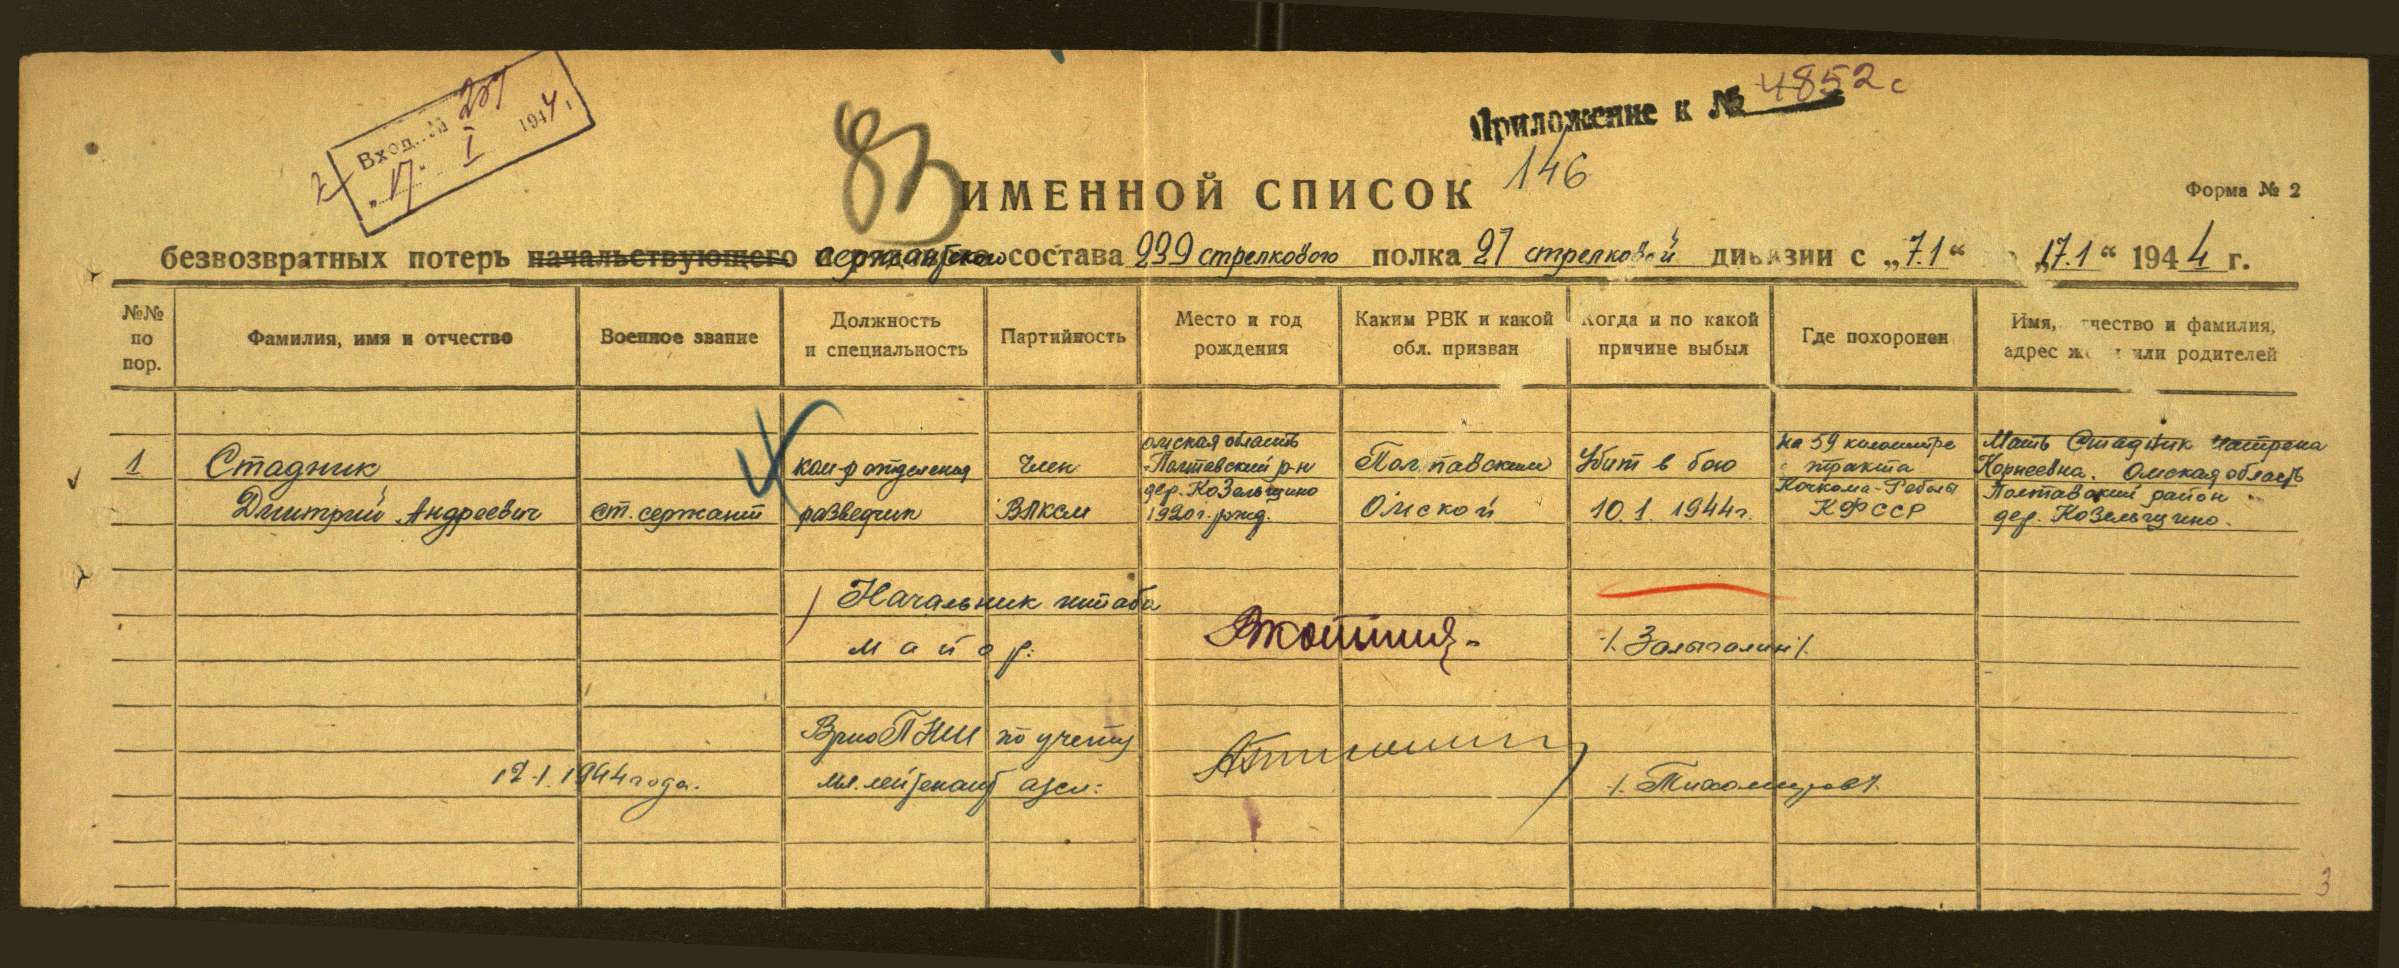 Вход. №
"17" I 1944 г.
83
Приложение к № 4852 с
146
ИМЕННОЙ СПИСОК
Форма № 2
безвозвратных потерь начальствующего сержантского состава 239 стрелкового полка 27 стрелковой дивизии с „7.1“ „17.1“ 1944 г.
№№ по пор.
Фамилия, имя и отчество
Военное звание
Должность и специальность
Партийность
Место и год рождения
Каким РВК и какой обл. призван
Когда и по какой причине выбыл
Где похоронен
Имя, отчество и фамилия, адрес жены или родителей
1
Стадник
Дмитрий Андреевич
ст. сержант
ком-р отделения
разведчик
Член
ВЛКСМ
Омская область
Полтавский р-н
дер. Козельщино
1920 г. рожд.
Полтавским
Омской
Убит в бою
10.1.1944 г.
на 59 километре
тракта
Кочкома-Реболы
КФССР
Мать Стадник
Корнеевна. Омская область
Полтавский район
дер. Козельщино.
Начальник штаба
майор:
/. Залыгалин /.
Врио ПНШ по учету
мл. лейтенант а/сл:
/. Тихомиров /.
12.1.1944 года.
3